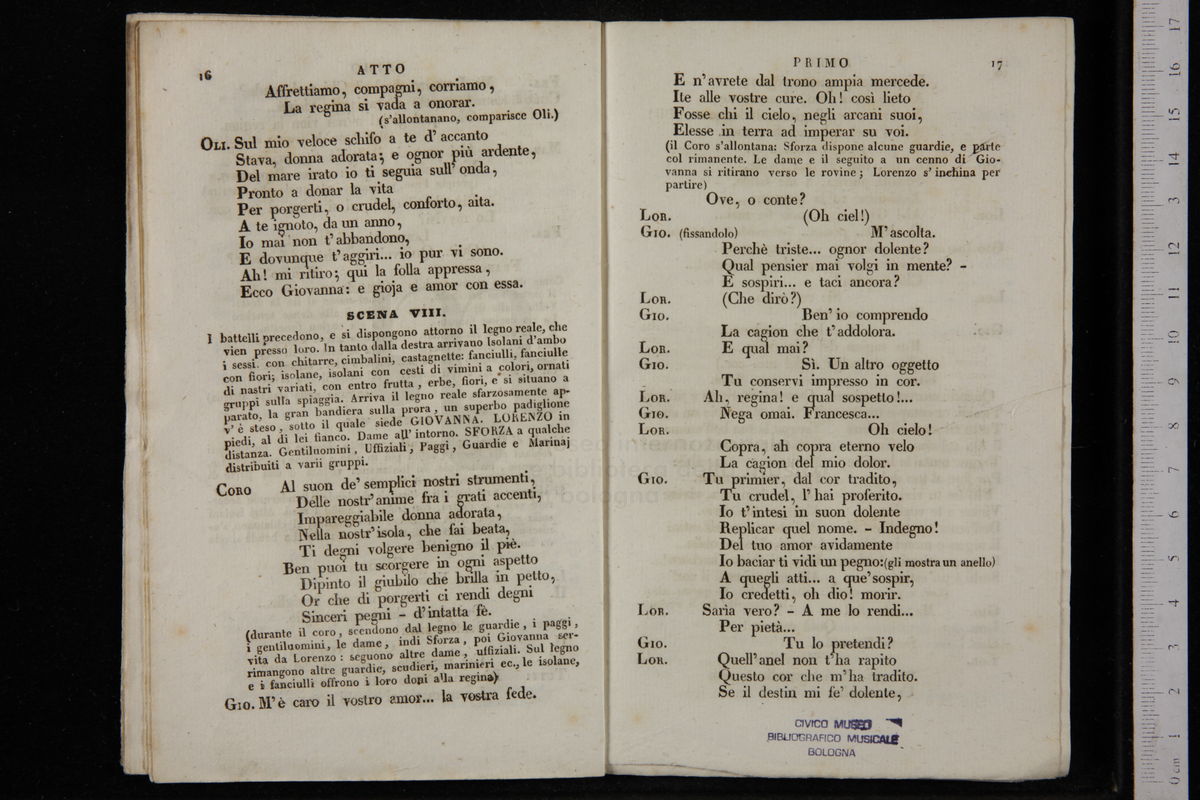 16
ATTO
Affrettiamo, compagni, corriamo,
La regina si vada a onorar.
(s'allontanano, comparisce Oli.)
OLI. Sul mio veloce schifo a te d' accanto
Stava, donna adorata; e ognor più ardente,
Del mare irato io ti seguia sull' onda,
Pronto a donar la vita
Per porgerti, o crudel, conforto, aita.
A te ignoto, da un anno,
Io mai non t' abbandono,
E dovunque t' aggiri... io pur vi sono.
Ah! mi ritiro; qui la folla appressa,
Ecco Giovanna: e gioja e amor con essa.
SCENA VIII.
I battelli precedono, e si dispongono attorno il legno reale, che
vien presso loro. In tanto dalla destra arrivano Isolani d'ambo
i sessi. con chitarre, cimbalini, castagnette: fanciulli, fanciulle
con fiori; isolane, isolani con cesti di vimini a colori, ornati
di nastri variati, con entro frutta, erbe, fiori, e si situano a
gruppi sulla spiaggia. Arriva il legno reale sfarzosamente ap-
parato, la gran bandiera sulla prora, un superbo padiglione
v' è steso, sotto il quale siede GIOVANNA. LORENZO in
piedi, al di lei fianco. Dame all' intorno. SFORZA a qualche
distanza. Gentiluomini, Uffiziali, Paggi, Guardie e Marinaj
distribuiti a varii gruppi.
CORO Al suon de' semplici nostri strumenti,
Delle nostr' anime fra i grati accenti,
Impareggiabile donna adorata,
Nella nostr' isola, che fai beata,
Ti degni volgere benigno il piè.
Ben puoi tu scorgere in ogni aspetto
Dipinto il giubilo che brilla in petto,
Or che di porgerti ci rendi degni
Sinceri pegni - d' intatta fè.
(durante il coro, scendono dal legno le guardie, i paggi,
i gentiluomini, le dame, indi Sforza, poi Giovanna ser-
vita da Lorenzo: seguono altre dame, uffiziali. Sul legno
rimangono altre guardie, scudieri, marinieri ec., le isolane,
e i fanciulli offrono i loro doni alla regina)
GIO. M' è caro il vostro amor... la vostra fede.
PRIMO
17
E n' avrete dal trono ampia mercede.
Ite alle vostre cure. Oh! così lieto
Fosse chi il cielo, negli arcani suoi,
Elesse in terra ad imperar su voi.
(il Coro s'allontana: Sforza dispone alcune guardie, e parte
col rimanente. Le dame e il seguito a un cenno di Gio-
vanna si ritirano verso le rovine; Lorenzo s' inchina per
partire)
Ove, o conte?
LOR. (Oh ciel!)
GIO. (fissandolo) M' ascolta.
Perchè triste... ognor dolente?
Qual pensier mai volgi in mente? -
E sospiri... e taci ancora?
LOR. (Che dirò?)
GIO. Ben' io comprendo
La cagion che t' addolora.
LOR. E qual mai?
GIO. Sì. Un altro oggetto
Tu conservi impresso in cor.
LOR. Ah, regina! e qual sospetto!...
GIO. Nega omai. Francesca...
LOR. Oh cielo!
Copra, ah copra eterno velo
La cagion del mio dolor.
GIO. Tu primier, dal cor tradito,
Tu crudel, l' hai proferito.
Io t' intesi in suon dolente
Replicar quel nome. - Indegno!
Del tuo amor avidamente
Io baciar ti vidi un pegno: (gli mostra un anello)
A quegli atti... a que' sospir,
Io credetti, oh dio! morir.
LOR. Saria vero? - A me lo rendi...
Per pietà...
GIO. Tu lo pretendi?
LOR. Quell' anel non t' ha rapito
Questo cor che m' ha tradito.
Se il destin mi fe' dolente,
CIVICO MUSEO
BIBLIOGRAFICO MUSICALE
BOLOGNA